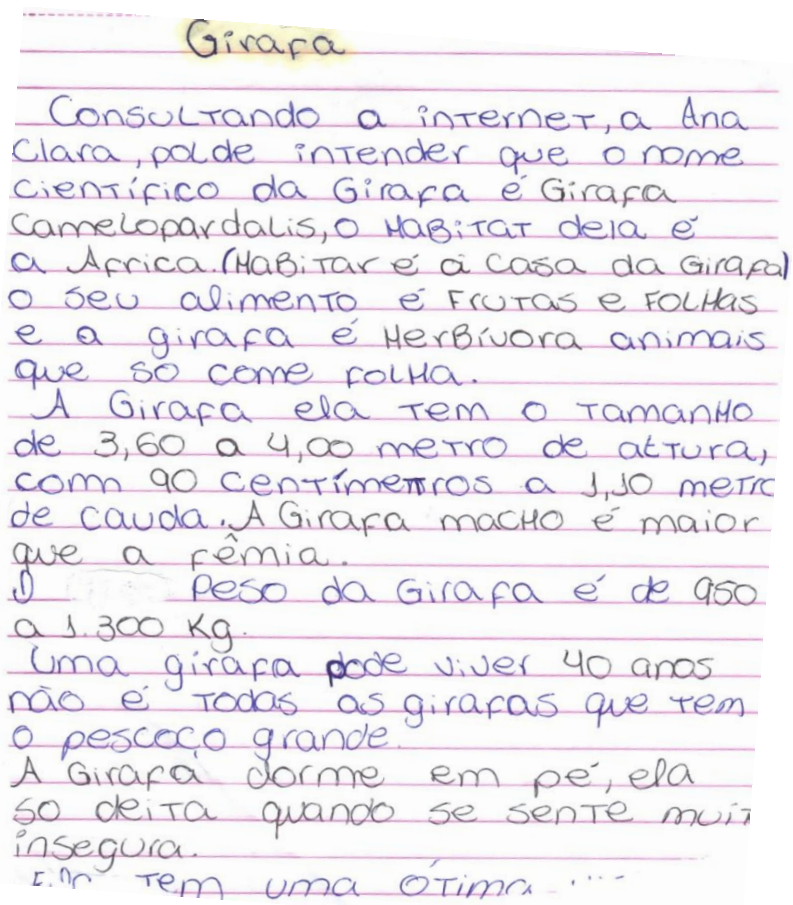 Girafa
Consultando a internet, a Ana
Clara, polde intender que o nome
científico da Girafa é Girafa
Camelopardalis, o Habitat dela é
a Africa. (Habitar é a casa da Girafa)
o seu alimento é Frutas e Folhas
e a girafa é Herbívora animais
que so come folha.
A Girafa ela tem o tamanho
de 3,60 a 4,00 metro de attura,
com 90 centímetros a 1,10 metro
de cauda. A Girafa macho é maior
que a fêmia.
Peso da Girafa é de 950
a 1.300 Kg.
Uma girafa pode viver 40 anos
não é todas as girafas que tem
o pescoço grande.
A Girafa dorme em pé, ela
so deita quando se sente muit
insegura.
tem uma ótima